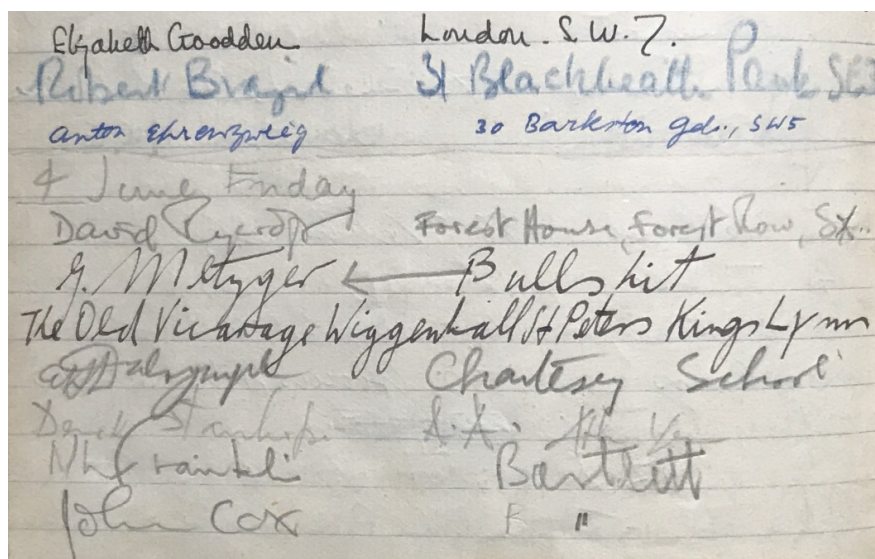 Elizabeth Goodden London. S.W.7.
Robert 31 Blackheath Park SE3
anton Ehrenzweig 30 Barkston gds., SW5
4 June Friday
David Rycroft Forest House, Forest Row, Sx..
G. Metzger ← Bullshit
The Old Vicarage Wiggenhall St Peters Kings Lynn
Chartesey School
Derek
Bartlett
John Cox "